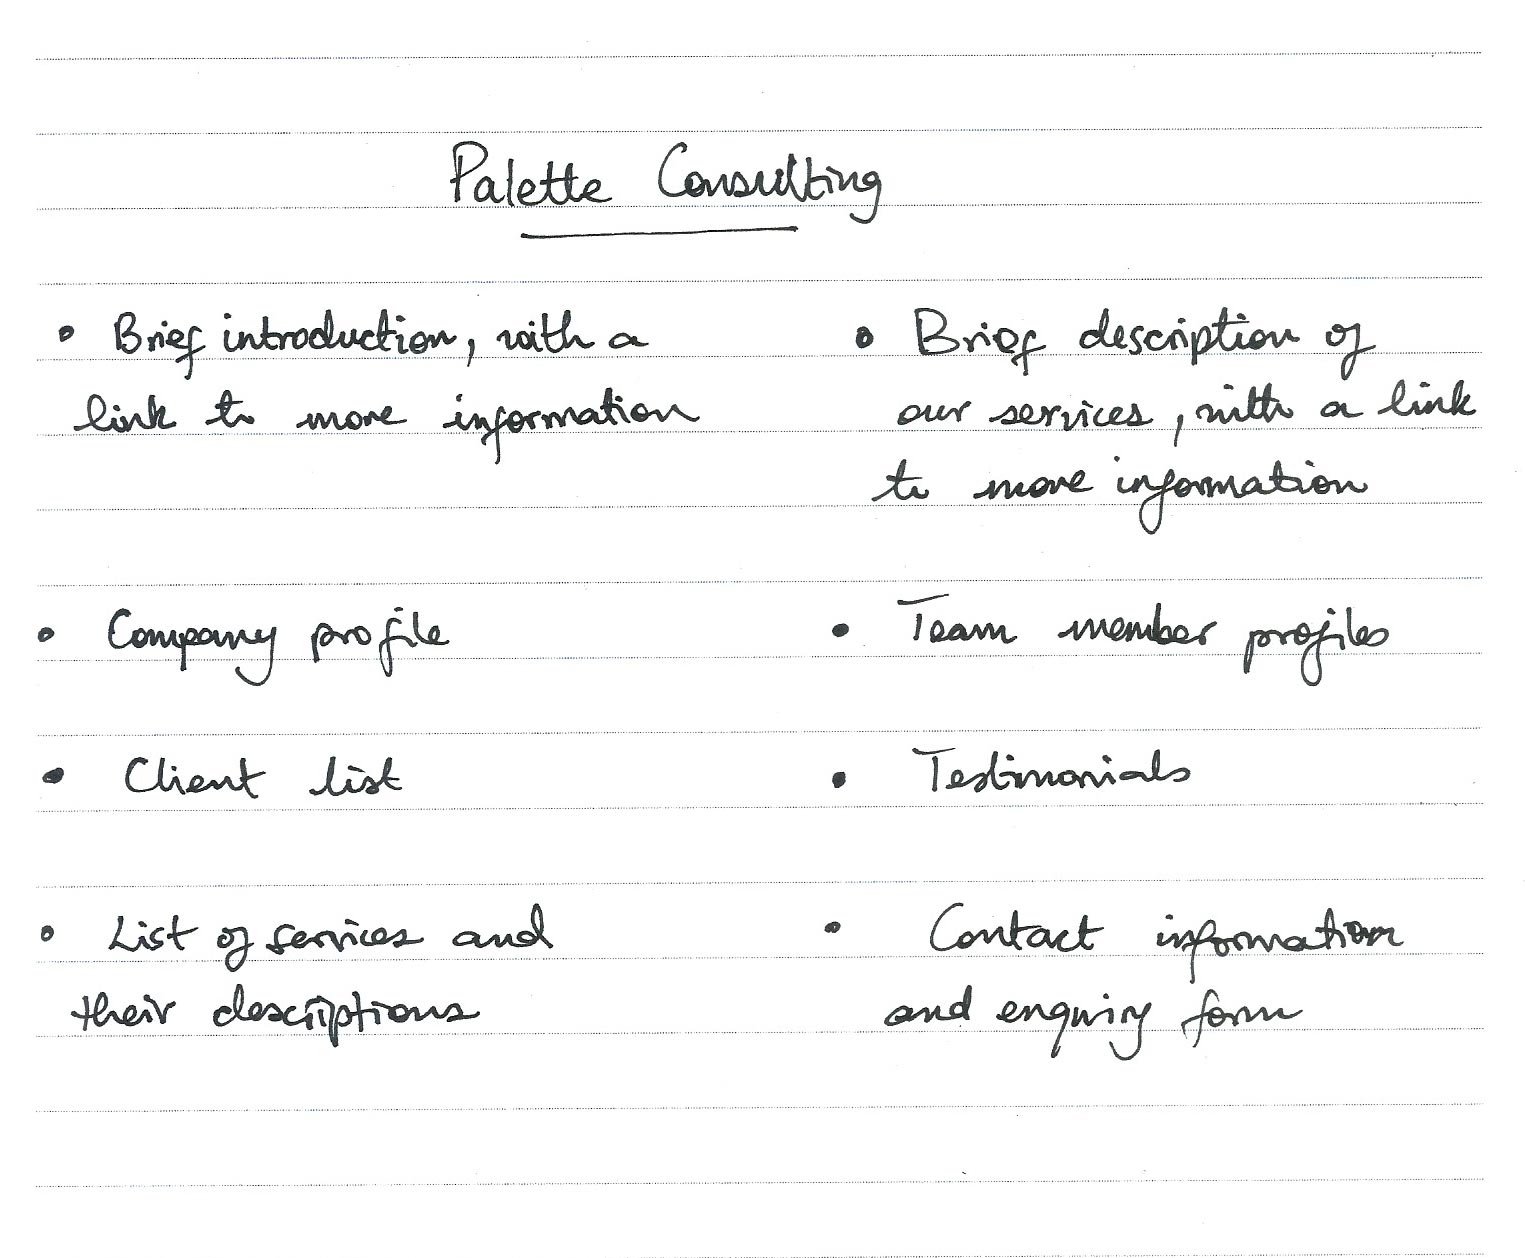 Palette Consulting
• Brief introduction, with a
link to more information
• Brief description of
our services, with a link
to more information
• Company profile
• Team member profiles
• Client list
• Testimonials
• List of services and
their descriptions
• Contact information
and enquiry form